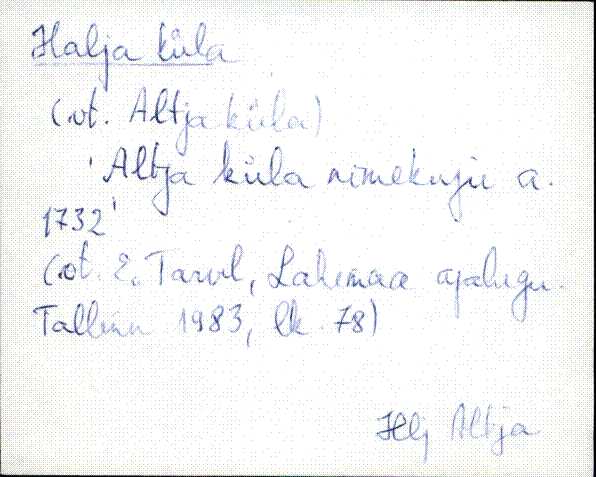 Halja küla
(vt. Altja küla)
'Altja küla nimekuju a.
1732'
(vt. E. Tarvel, Lahemaa ajalugu.
Tallinn 1983, lk. 78)
Hlj Altja